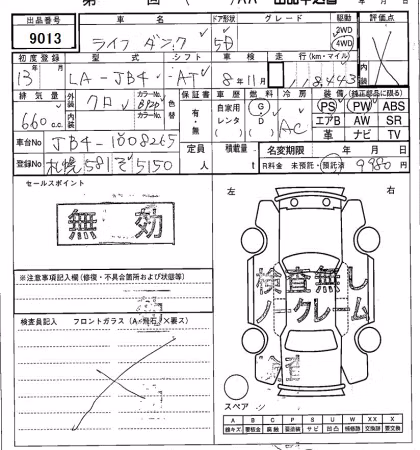 出品番号 車名 ドア形状 グレード 駆動 評価点
9013 ライフ ダンク 5D 2WD 4WD
初度登録 型式 シフト 車検 走行(km・マイル) 内装
13年 月 LA-JB4 AT 8年11月 18,443
排気量 外装 クロ カラーNo. B92P 色替 保証書 車歴 燃料 冷房 装備(純正部品に限る)
660 c.c. 内装 カラーNo. 有・無 自家用 G AC PS PW ABS
レンタ D エアB AW SR
( ) ( ) 革 ナビ TV
車台No JB4-1008265 定員 積載量 名変期限 年 月 日
登録No 札幌581そ5150 人 t R料金 未預託・預託済 9980円
セールスポイント 左 右
無効
検査無し
ノークレーム
※注意事項記入欄(修復・不具合箇所および状態等)
検査員記入 フロントガラス(A=飛石 X=要ス)
スペア
A B C P S U W X XX
線キズ 要板金 腐触 要塗装 サビ 凹凸 補修跡 交換跡 要交換